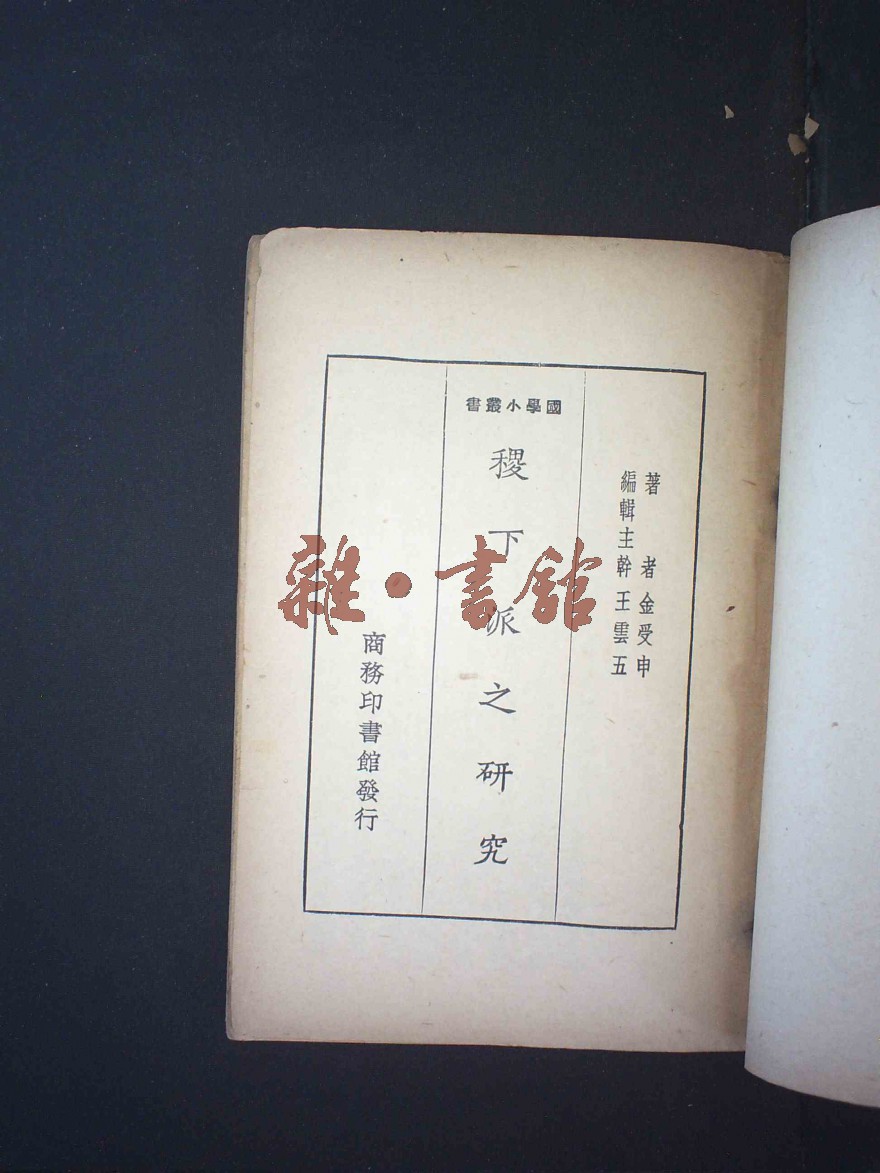 著者金受申
編輯主幹王雲五
國學小叢書
稷下派之研究
商務印書館發行
雜·書館